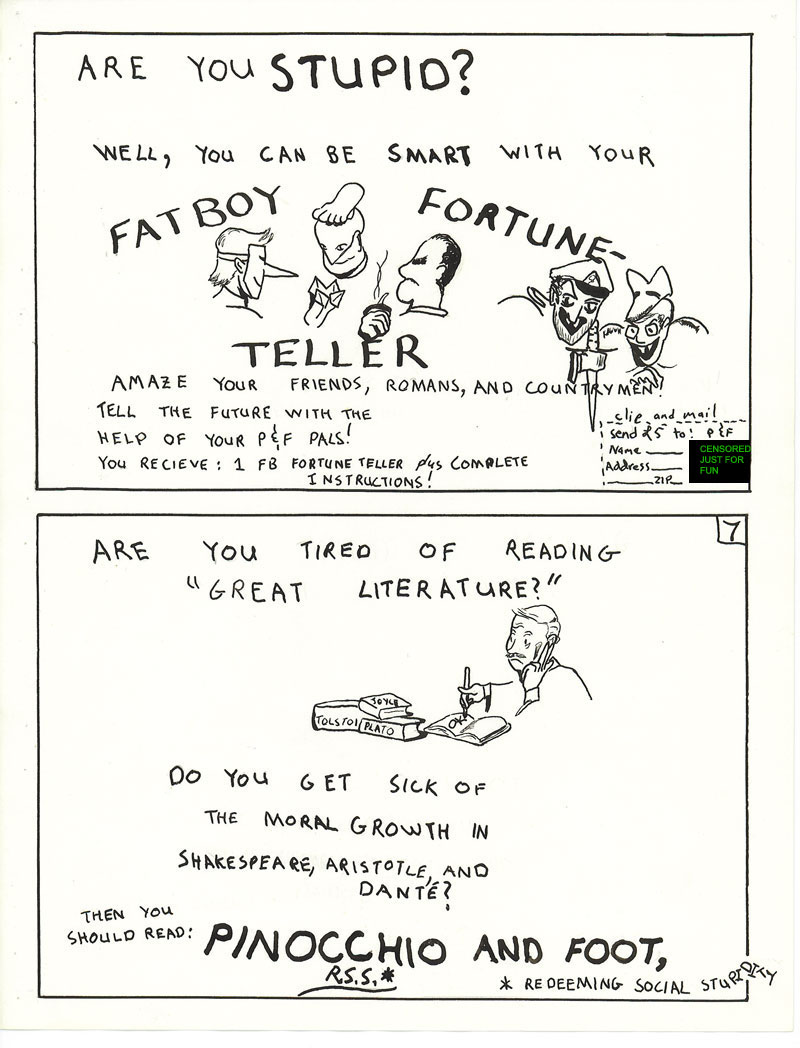 ARE YOU STUPID?
WELL, YOU CAN BE SMART WITH YOUR
FATBOY FORTUNE-
TELLER
AMAZE YOUR FRIENDS, ROMANS, AND COUNTRYMEN!
TELL THE FUTURE WITH THE
HELP OF YOUR P&F PALS!
YOU RECIEVE: 1 FB FORTUNE TELLER plus COMPLETE
INSTRUCTIONS!
clip and mail
send to: P&F
Name
Address
ZIP
CENSORED
JUST FOR
FUN
7
ARE YOU TIRED OF READING
"GREAT LITERATURE?"
JOYCE
TOLSTOI
PLATO
DO YOU GET SICK OF
THE MORAL GROWTH IN
SHAKESPEARE, ARISTOTLE, AND
DANTÉ?
THEN YOU
SHOULD READ: PINOCCHIO AND FOOT,
R.S.S.*
* REDEEMING SOCIAL STUPIDITY